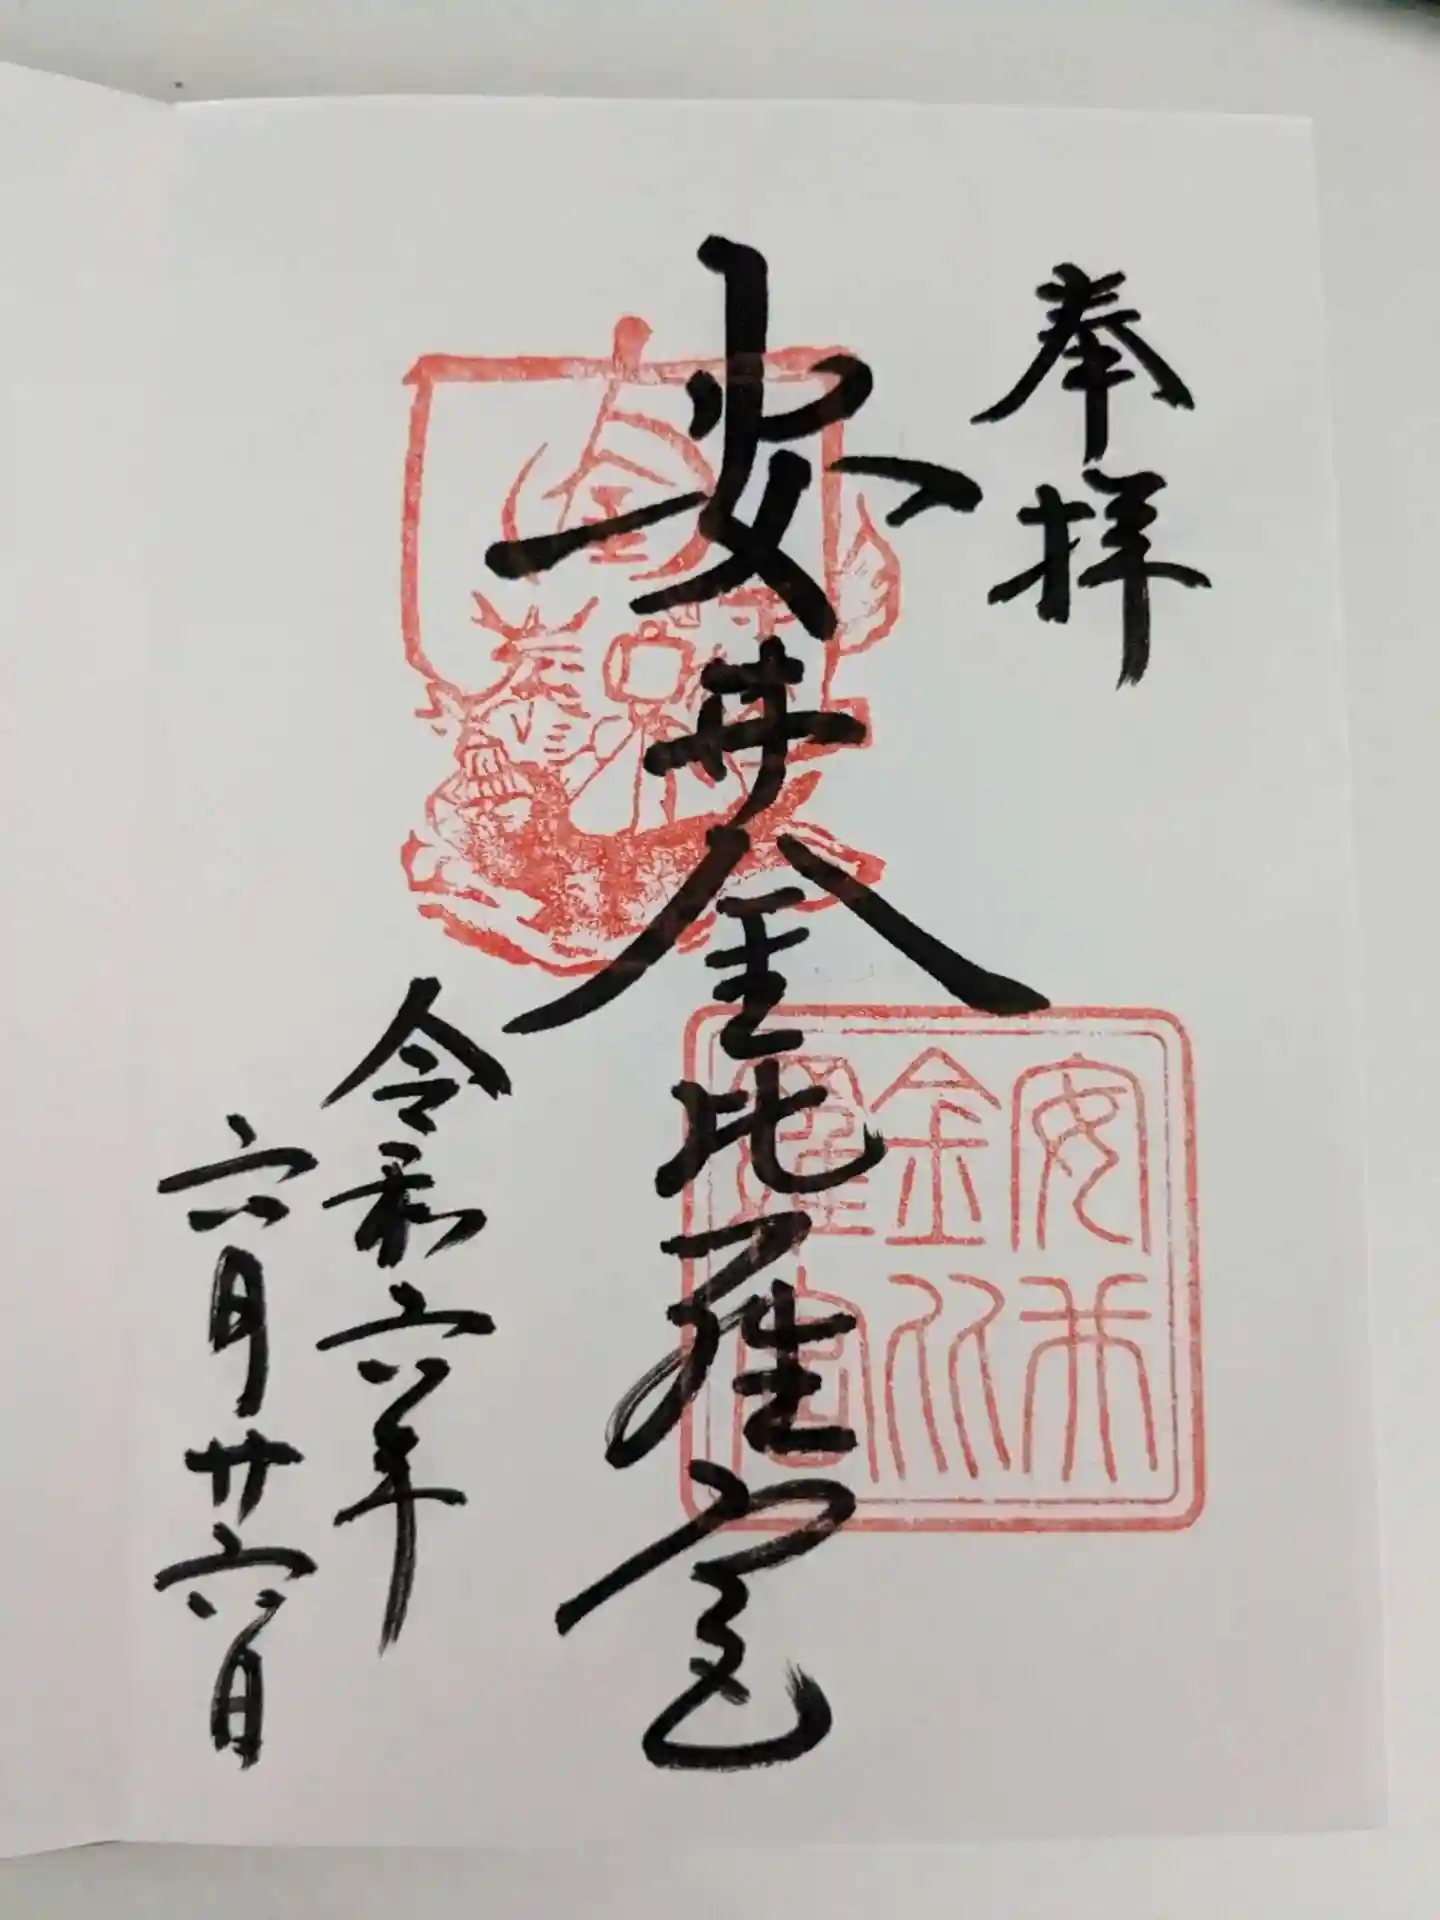 奉拝
安井金比羅宮
令和六年
六月廿六日
金
安井
金比
羅宮